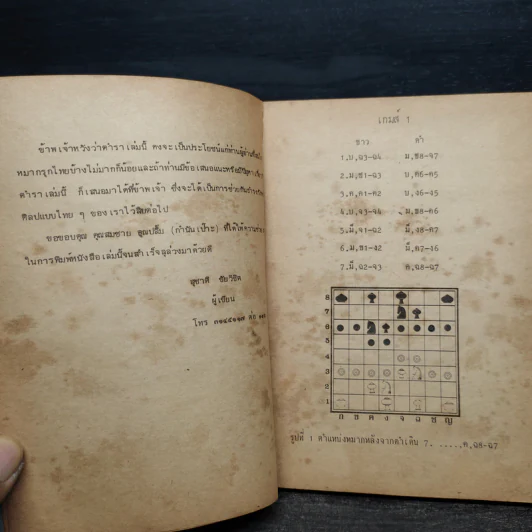 ข้าพเจ้าหวังว่าตำราเล่มนี้ คงจะเป็นประโยชน์แก่ท่านผู้อ่าน
หมากรุกไทยบ้างไม่มากก็น้อยและถ้าท่านมีข้อเสนอแนะหรือมีปัญหา
ตำราเล่มนี้ ก็เสนอมาได้ที่ข้าพเจ้า ซึ่งจะได้เป็นการช่วยกัน
ศิลปแบบไทย ๆ ของเราไว้สืบต่อไป
ขอขอบคุณ คุณสมชาย (กำนันเป๊าะ) ที่ได้ให้
ในการพิมพ์หนังสือเล่มนี้จนสำเร็จลุล่วงมาด้วยดี
สุชาติ ชัยวิชิต
ผู้เขียน
โทร
เกมส์ 1
ขาว ดำ
1.บ,จ3-จ4 ม,ช8-ง7
2.ม,ช1-ง3 บ,ค6-ค5
3.ค,ค1-ค2 บ,ง6-ง5
4.บ,ฉ3-ฉ4 ม,ข8-ค6
5.ม็,ง1-จ2 ม็,จ8-ฉ7
6.ม,ข1-ง2 ม็,ฉ7-จ6
7.ม็,จ2-จ3 ค,ฉ8-ฉ7
8
7
6
5
4
3
2
1
ก ข ค ง จ ฉ ช ญ
รูปที่ 1 ตำแหน่งหมากหลังจากดำเดิน 7. .....ค,ฉ8-ฉ7